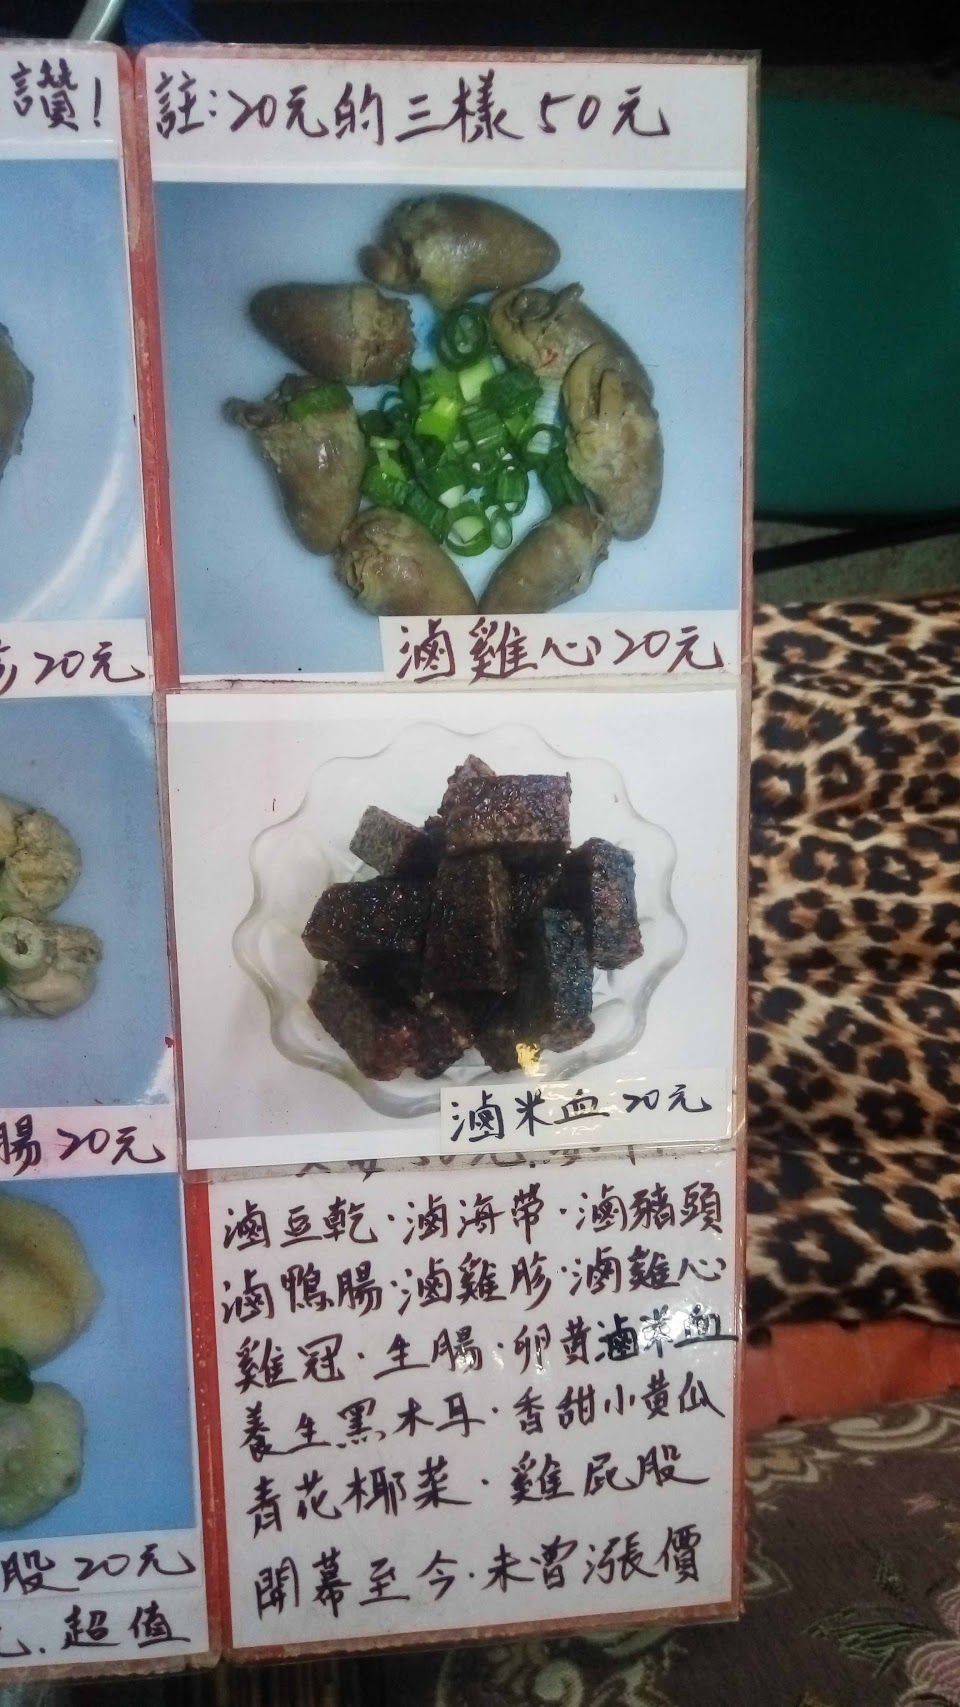 讚！
註：20元的三樣50元
20元
滷雞心20元
腸20元
滷米血20元
滷豆乾．滷海帶．滷豬頭
滷鴨腸．滷雞胗．滷雞心
雞冠．生腸．卵黄滷米血
養生黑木耳．香甜小黄瓜
青花椰菜．雞屁股
開幕至今．未曾漲價
股20元
元．超值